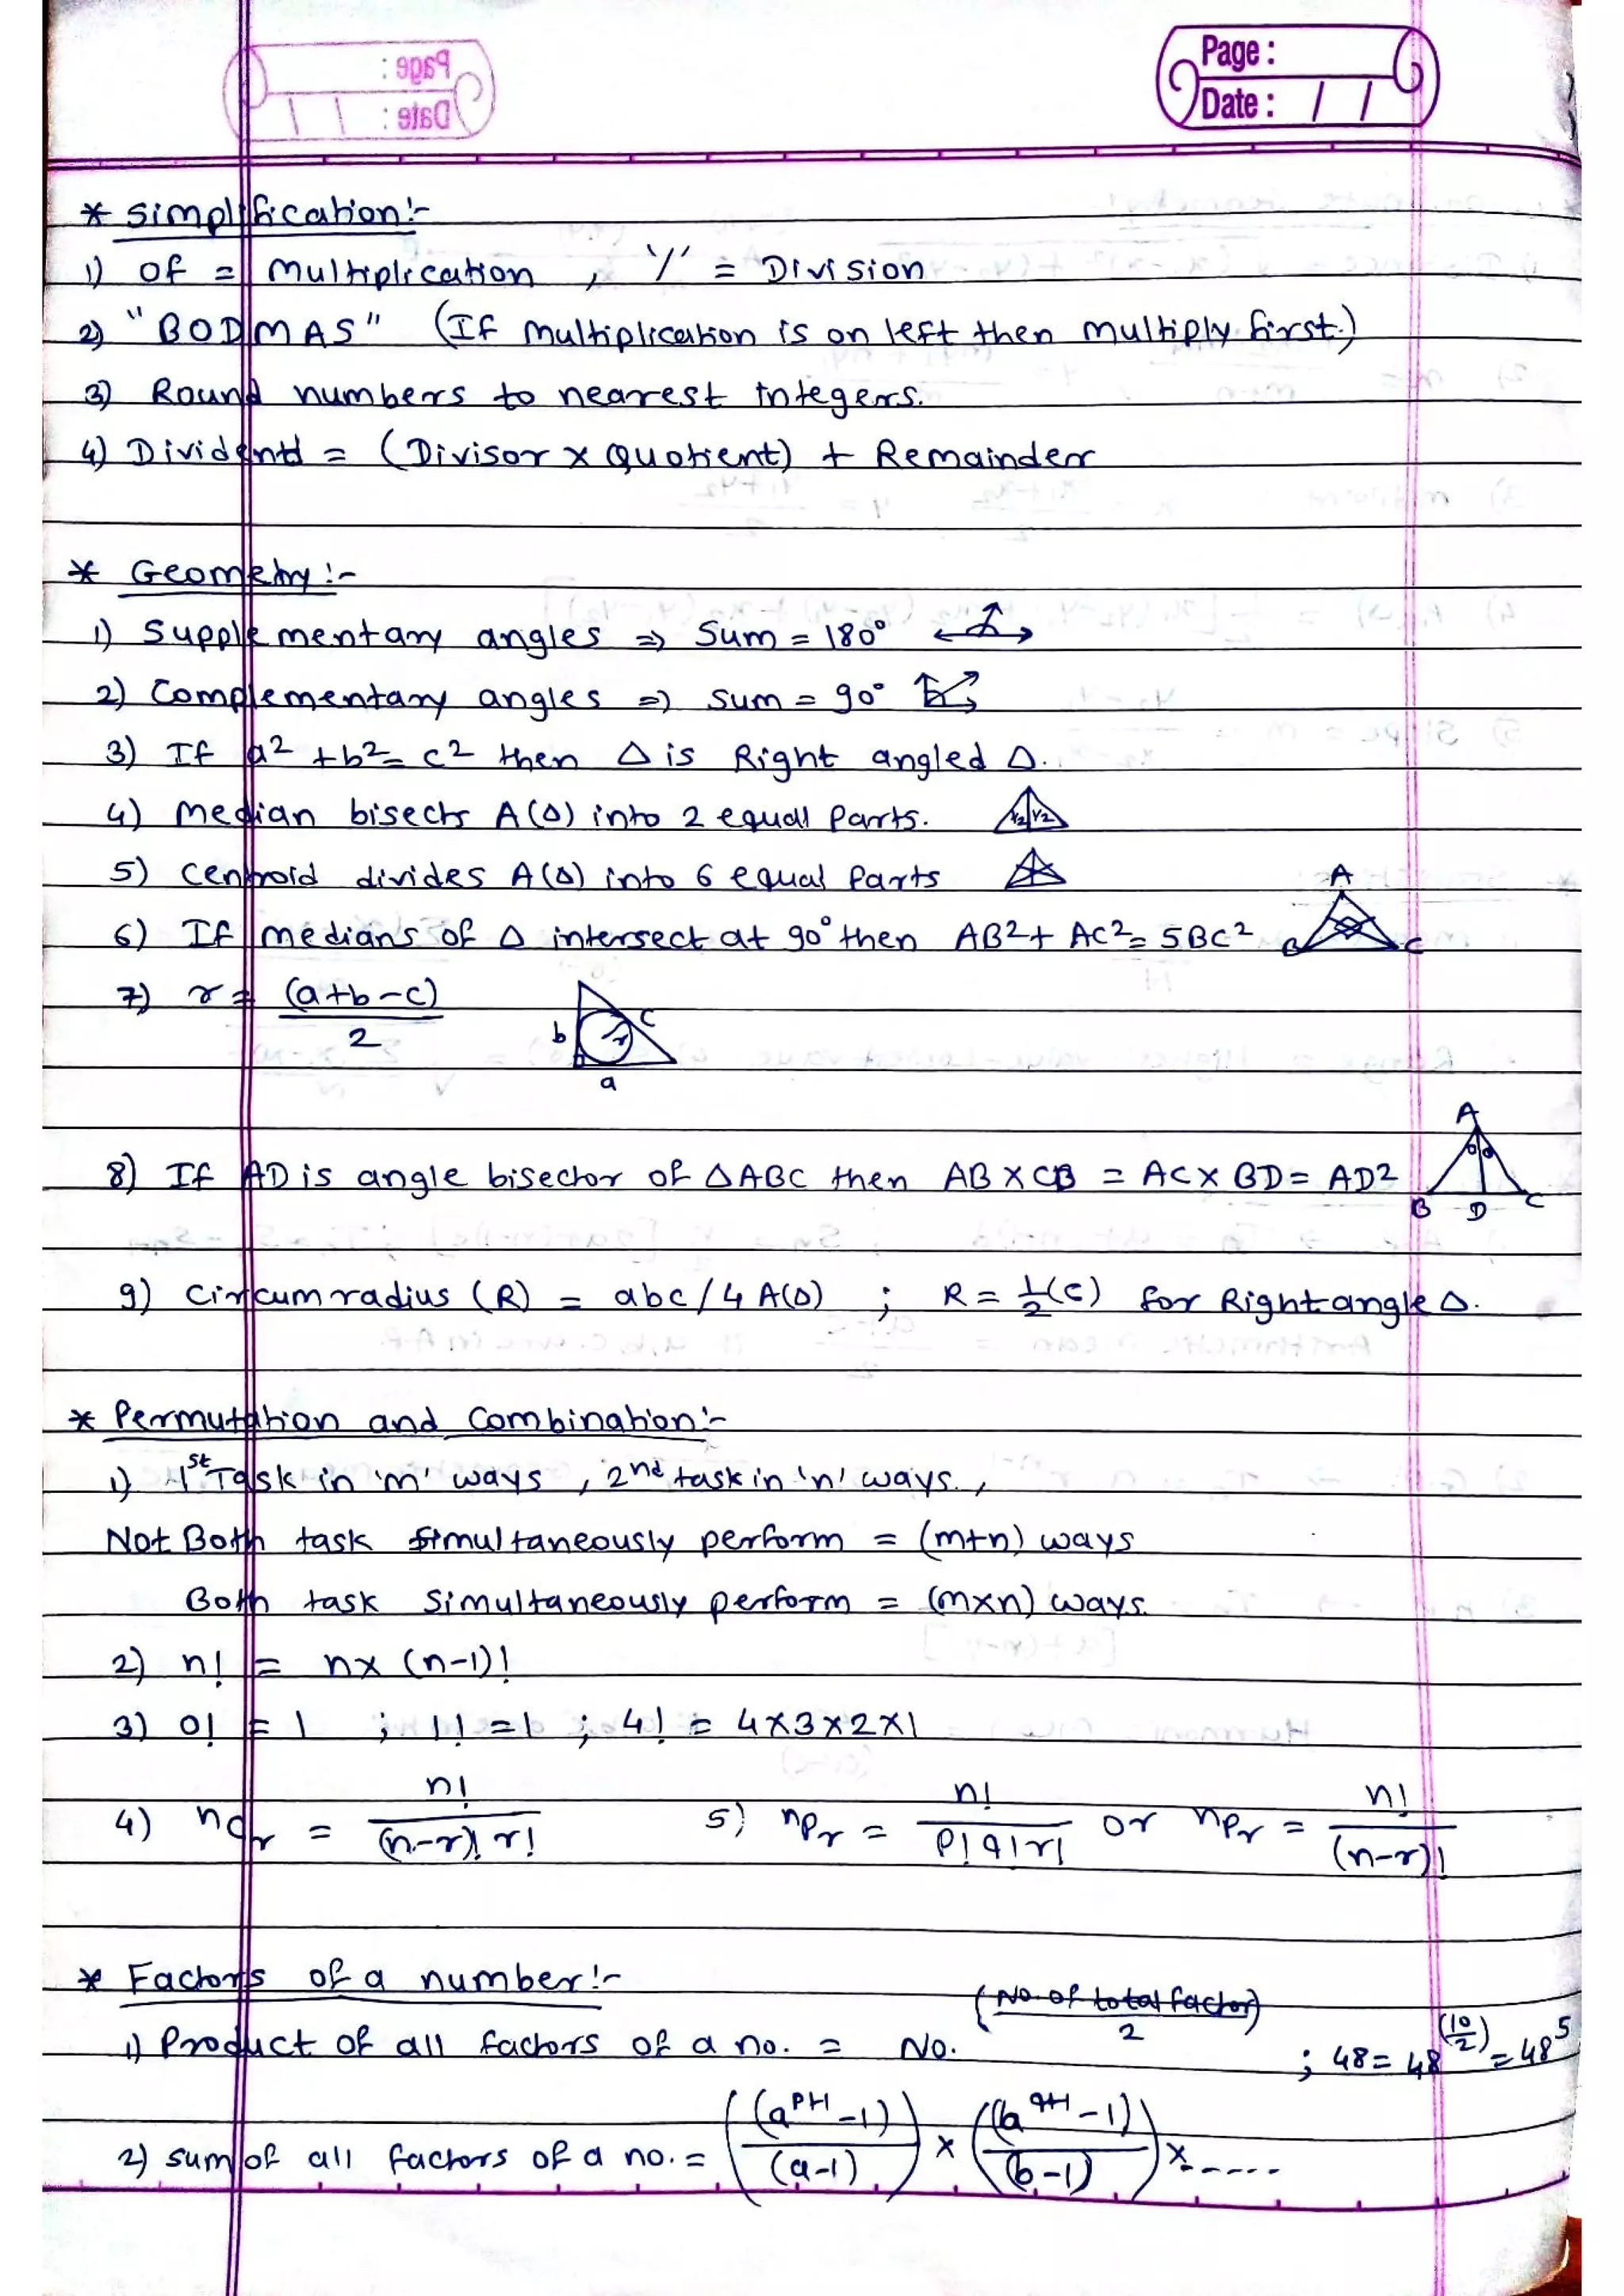 Page :
Date : / /
* Simplification:-
1) Of = Multiplication , '/' = Division
2) "BODMAS" (If multiplication is on left then multiply first.)
3) Round numbers to nearest integers.
4) Dividend = (Divisor x Quotient) + Remainder
* Geometry :-
1) Supplementary angles ⇒ Sum = 180°
2) Complementary angles ⇒ Sum = 90°
3) If a² + b² = c² then △ is Right angled △.
4) Median bisects A(△) into 2 equal Parts. 1/2 1/2
5) Centroid divides A(△) into 6 equal Parts
6) If medians of △ intersect at 90° then AB² + AC² = 5BC² A B C
7) r = (a+b-c)/2 b c r a
8) If AD is angle bisector of △ABC then AB X CB = AC X BD = AD² A B D C
9) Circumradius (R) = abc/4 A(△) ; R = 1/2(c) for Right angle △.
* Permutation and Combination:-
1) 1st Task in 'm' ways , 2nd task in 'n' ways. ,
Not Both task simultaneously perform = (m+n) ways
Both task simultaneously perform = (m×n) ways.
2) n! = n x (n-1)!
3) 0! = 1 ; 1! = 1 ; 4! = 4x3x2x1
4) nCr = n!/(n-r)! r! 5) nPr = n!/P! q! r! or nPr = n!/(n-r)!
* Factors of a number:-
1) Product of all factors of a no. = No.^(No. of total factor)/2 ; 48 = 48^(10/2) = 48⁵
2) sum of all factors of a no. = ((a^(p+1) -1)/(a-1)) x ((b^(q+1) -1)/(b-1)) x.-----